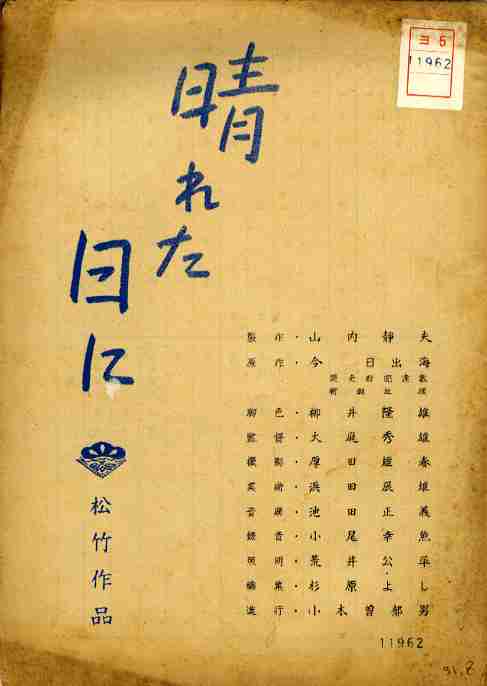 晴れた
日に
松竹作品
ヨ5
11962
製作・山内静夫
原作・今日出海
脚色・柳井隆雄
監督・大庭秀雄
撮影・厚田雄春
美術・浜田辰雄
音楽・池田正義
録音・小尾幸魚
照明・荒井公平
編集・杉原よし
進行・小木曽郁男
11962